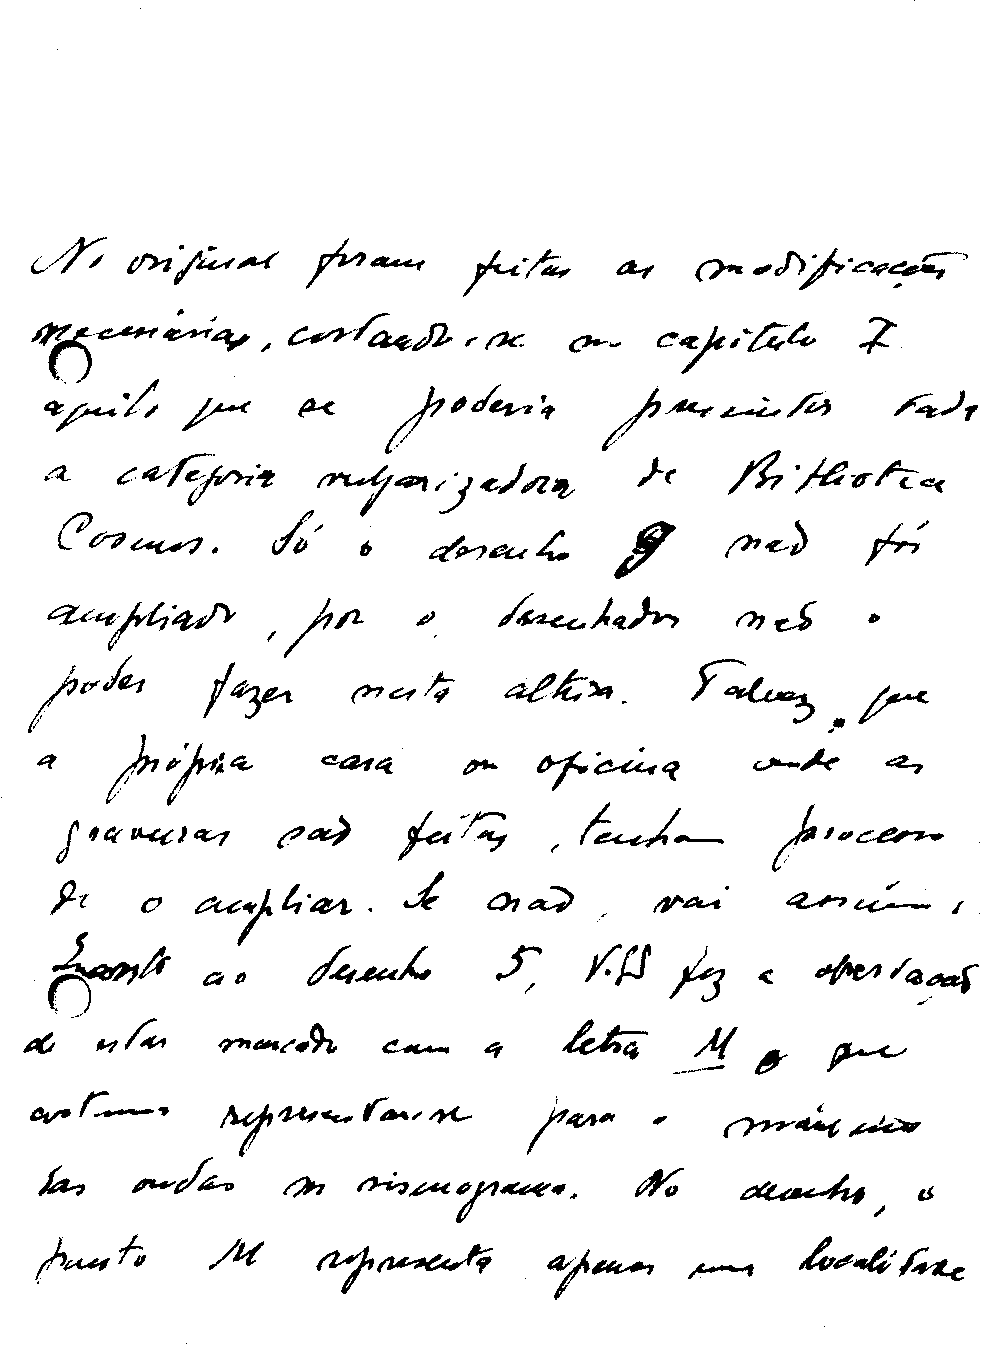 No original foram feitas as modificações
necessárias, cortando-se no capitulo I
aquilo que se poderia prescindir dada
a categoria vulgarizadora da Biblioteca
Cosmos. Só o desenho 9 não foi
ampliado, por o desenhador não o
poder fazer nesta altura. Talvez que
a própria casa ou oficina onde as
gravuras são feitas, tenham processo
de o ampliar. Se não, vai assim.
Quanto ao desenho 5, V. fez a observação
de estar marcado com a letra M o que
costuma representar-se para o máximo
das ondas no sismograma. No desenho, o
ponto M representa apenas uma localidade